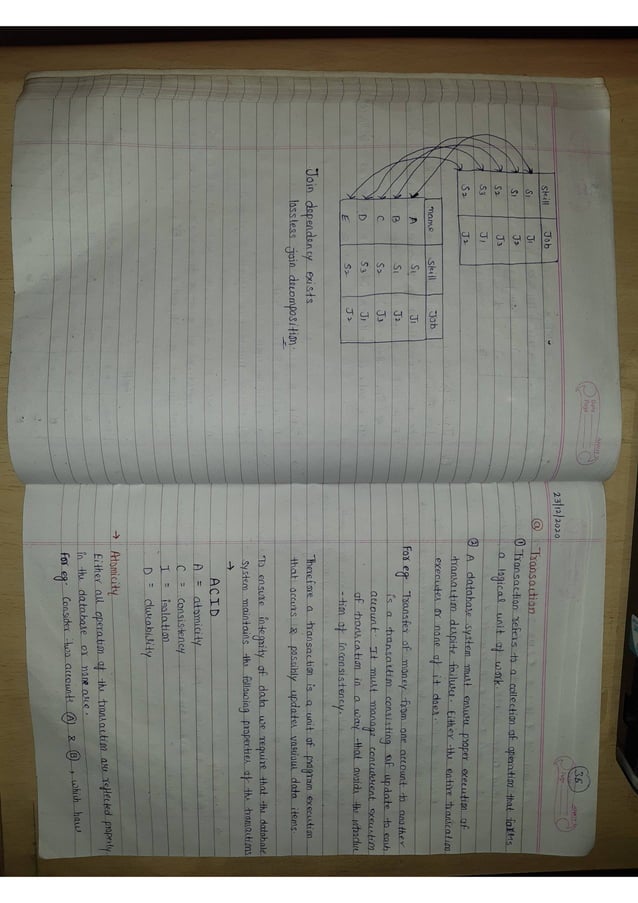 Skill Job
S1 J1
S1 J2
S2 J3
S3 J1
S2 J2
name Skill Job
A S1 J1
B S1 J2
C S2 J3
D S3 J1
E S2 J2
Join dependency exists
lossless join decomposition.
36
23/12/2020
@ Transaction
① Transaction refers to a collection of operation that forms
a logical unit of work.
② A database system must ensure proper execution of
transaction dispite failure. Either the entire transcation
executes or none of it does.
For eg Transfer of money from one account to another
is a transaction consisting of update to each
account. It must manage concurrent execution
of transcation in a way that avoids the introduc
-tion of inconsistency.
Therefore a transaction is a unit of program execution
that occurs & possibly updates various data items.
To ensure integrity of data we require that the database
system maintains the following properties of the transactions
→
ACID
A = atomicity
C = consistency
I = isolation
D = durability
→ Atomicity
Either all operation of the transaction are reflected properly
in the database or none are.
For eg: Consider two accounts Ⓐ & Ⓑ, which have